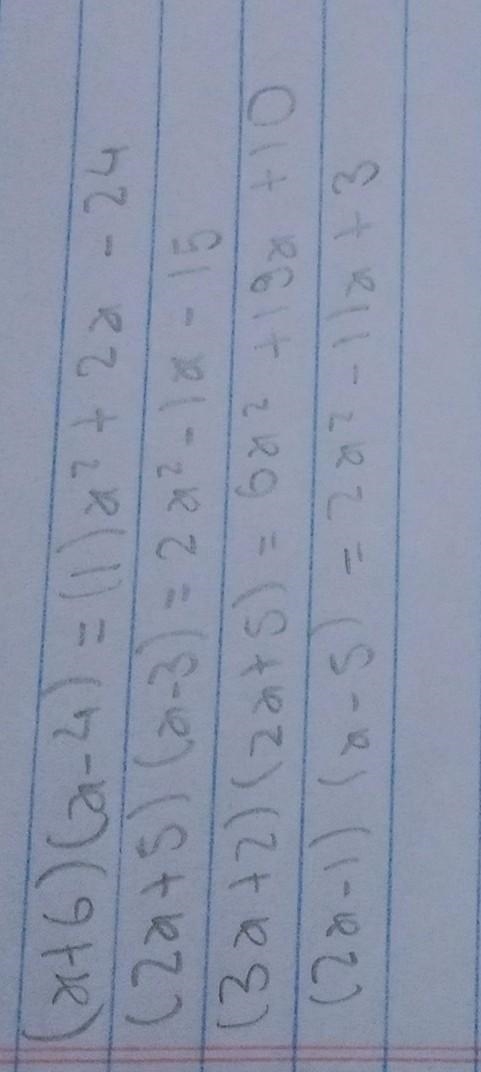 (x+6)(x-4) = (1)x² + 2x - 24
(2x+5)(x-3) = 2x² - 1x - 15
(3x+2)(2x+5) = 6x² + 19x + 10
(2x-1)(x-5) = 2x² - 11x + 3